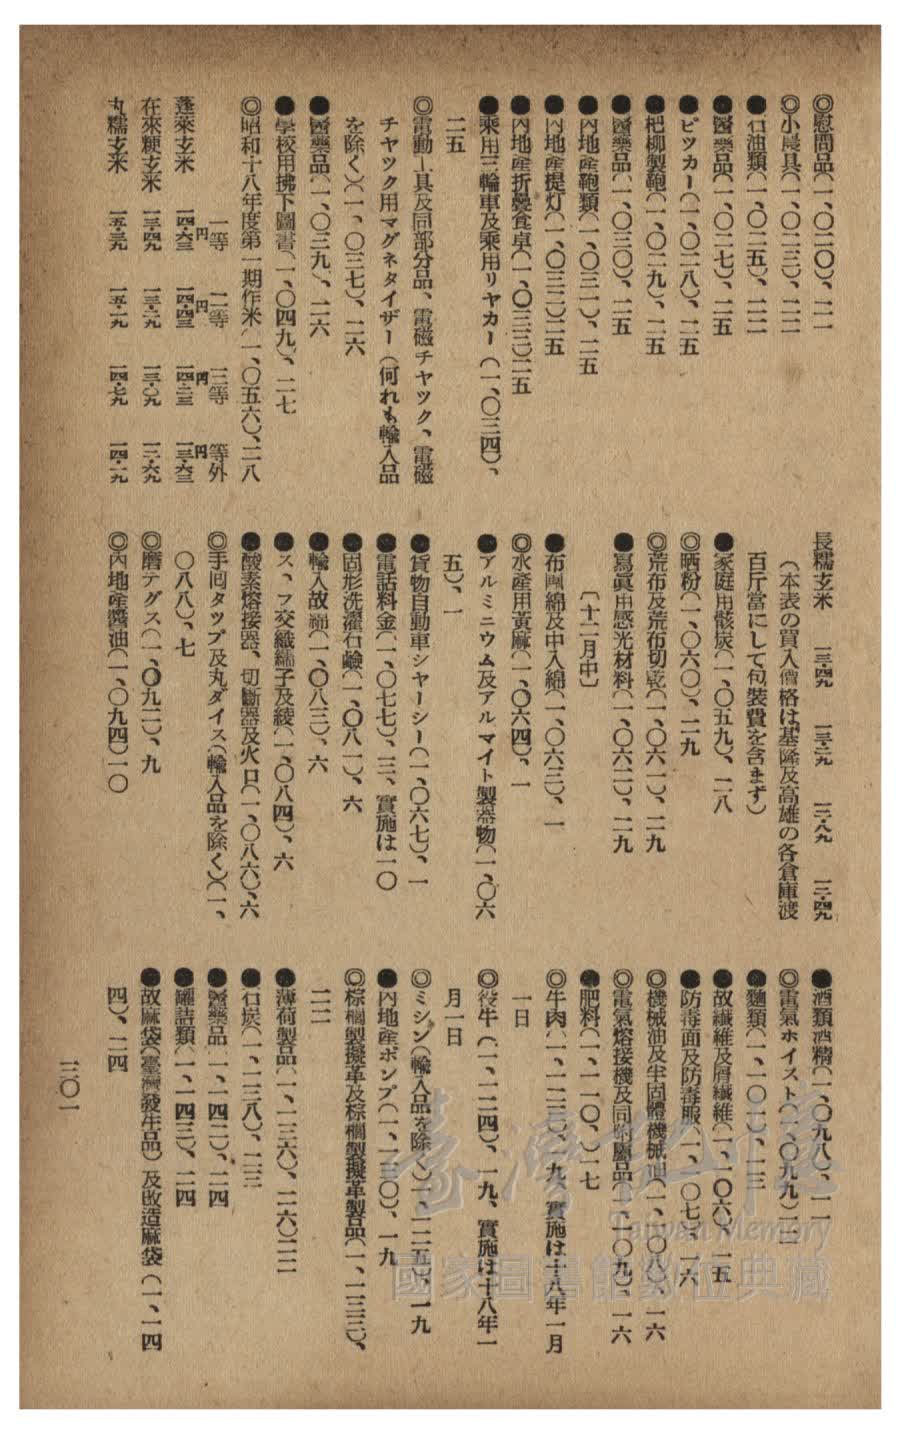 ◎慰問品(一、〇二〇)、二一
◎小農具(一、〇二三)、二二
●石油類(一、〇二五)、二二
●醫藥品(一、〇二七)、二五
●ピツカー(一、〇二八)、二五
●杷柳製鞄(一、〇二九)、二五
●醫藥品(一、〇三〇)、二五
●內地產鞄類(一、〇三一)、二五
●內地產提灯(一、〇三二)二五
●內地產折疊食卓(一、〇三三)二五
●乘用三輪車及乘用リヤカー(一、〇三四)、
二五
◎電動工具及同部分品、電磁チヤツク、電磁
チヤツク用マグネタイザー(何れも輸入品
を除く)(一、〇三七)、二六
●醫藥品(一、〇三九)、二六
●學校用拂下圖書(一、〇四九)、二七
◎昭和十八年度第一期作米(一、〇五六)、二八
一等 二等 三等 等外
蓬萊玄米 一四・六三円 一四・四三円 一四・二三円 一三・六三円
在來粳玄米 一三・四九 一三・二九 一三・〇九 一二・六九
丸糯玄米 一五・三九 一五・一九 一四・七九 一四・一九
長糯玄米 一三・四九 一三・二九 一二・八九 一二・四九
(本表の買入價格は基隆及高雄の各倉庫渡
百斤當にして包裝費を含まず)
●家庭用骸炭(一、〇五九)、二八
◎晒粉(一、〇六〇)、二九
◎荒布及荒布切乾(一、〇六一)、二九
●寫眞用感光材料(一、〇六二)、二九
〔十二月中〕
●布團綿及中入綿(一、〇六三)、一
◎水產用黃麻(一、〇六四)、一
●アルミニウム及アルマイト製器物(一、〇六
五)、一
●貨物自動車シヤーシー(一、〇六七)、一
●電話料金(一、〇七七)、三、實施は一〇
●固形洗濯石鹼(一、〇八一)、六
●輸入故綿(一、〇八三)、六
●ス、フ交織繻子及綾(一、〇八四)、六
●酸素熔接器、切斷器及火口(一、〇八六)、六
◎手回タツプ及丸ダイス(輸入品を除く)(一、
〇八八)、七
◎磨テグス(一、〇九二)、九
◎內地產醬油(一、〇九四)一〇
●酒類酒精(一、〇九八)、一一
◎電氣ホイスト(一、〇九九)一三
●麵類(一、一〇一)、一三
●故纖維及屑纖維(一、一〇六)、一五
●防毒面及防毒服(一、一〇七)、一六
◎機械油及半固體機械油(一、一〇八)、一六
◎電氣熔接機及同附屬品(一、一〇九)、一六
●肥料(一、一一〇)、一七
◎牛肉(一、一二三)、一九、實施は十八年一月
一日
◎役牛(一、一二四)、一九、實施は十八年一
月一日
◎ミシン(輸入品を除く)(一、一二五)、一九
●內地產ポンプ(一、一三〇)、一九
◎棕櫚製擬革及棕櫚製擬革製品(一、一三三)、
二二
●薄荷製品(一、一三六)、二六)二二
●石炭(一、一三八)、二三
●醫藥品(一、一四二)、二四
●罐詰類(一、一四三)、二四
●故麻袋(臺灣發生品)及改造麻袋(一、一四
四)、二四
三〇一
臺灣記憶
Taiwan Memory
國家圖書館數位典藏